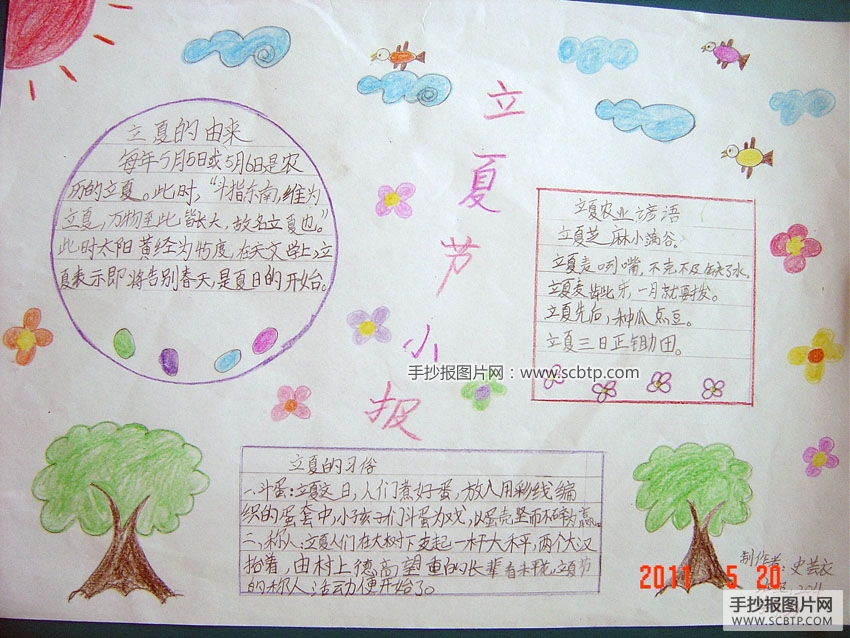 立夏节小报
立夏的由来
每年5月5日或5月6日是农
历的立夏。此时，“斗指东南，维为
立夏，万物至此皆长大，故名立夏也。”
此时太阳黄经为45度，在天文学上，立
夏表示即将告别春天，是夏日的开始。
立夏农业谚语
立夏芝麻小满谷。
立夏麦咧嘴，不克不及缺了水。
立夏麦龇牙，一月就要拔。
立夏先后，种瓜点豆。
立夏三日正锄田。
手抄报图片网：www.scbtp.com
立夏的习俗
一、斗蛋：立夏这日，人们煮好蛋，放入用彩线编
织的蛋套中，小孩子们斗蛋为戏，以蛋壳坚而不碎为赢。
二、称人：立夏人们在大树下支起一杆大秤，两个大汉
抬着，由村上德高望重的长辈看秤，立夏节
的称人活动便开始了。
制作者：史芸衣
2011 5 20
手抄报图片网
WWW.SCBTP.COM